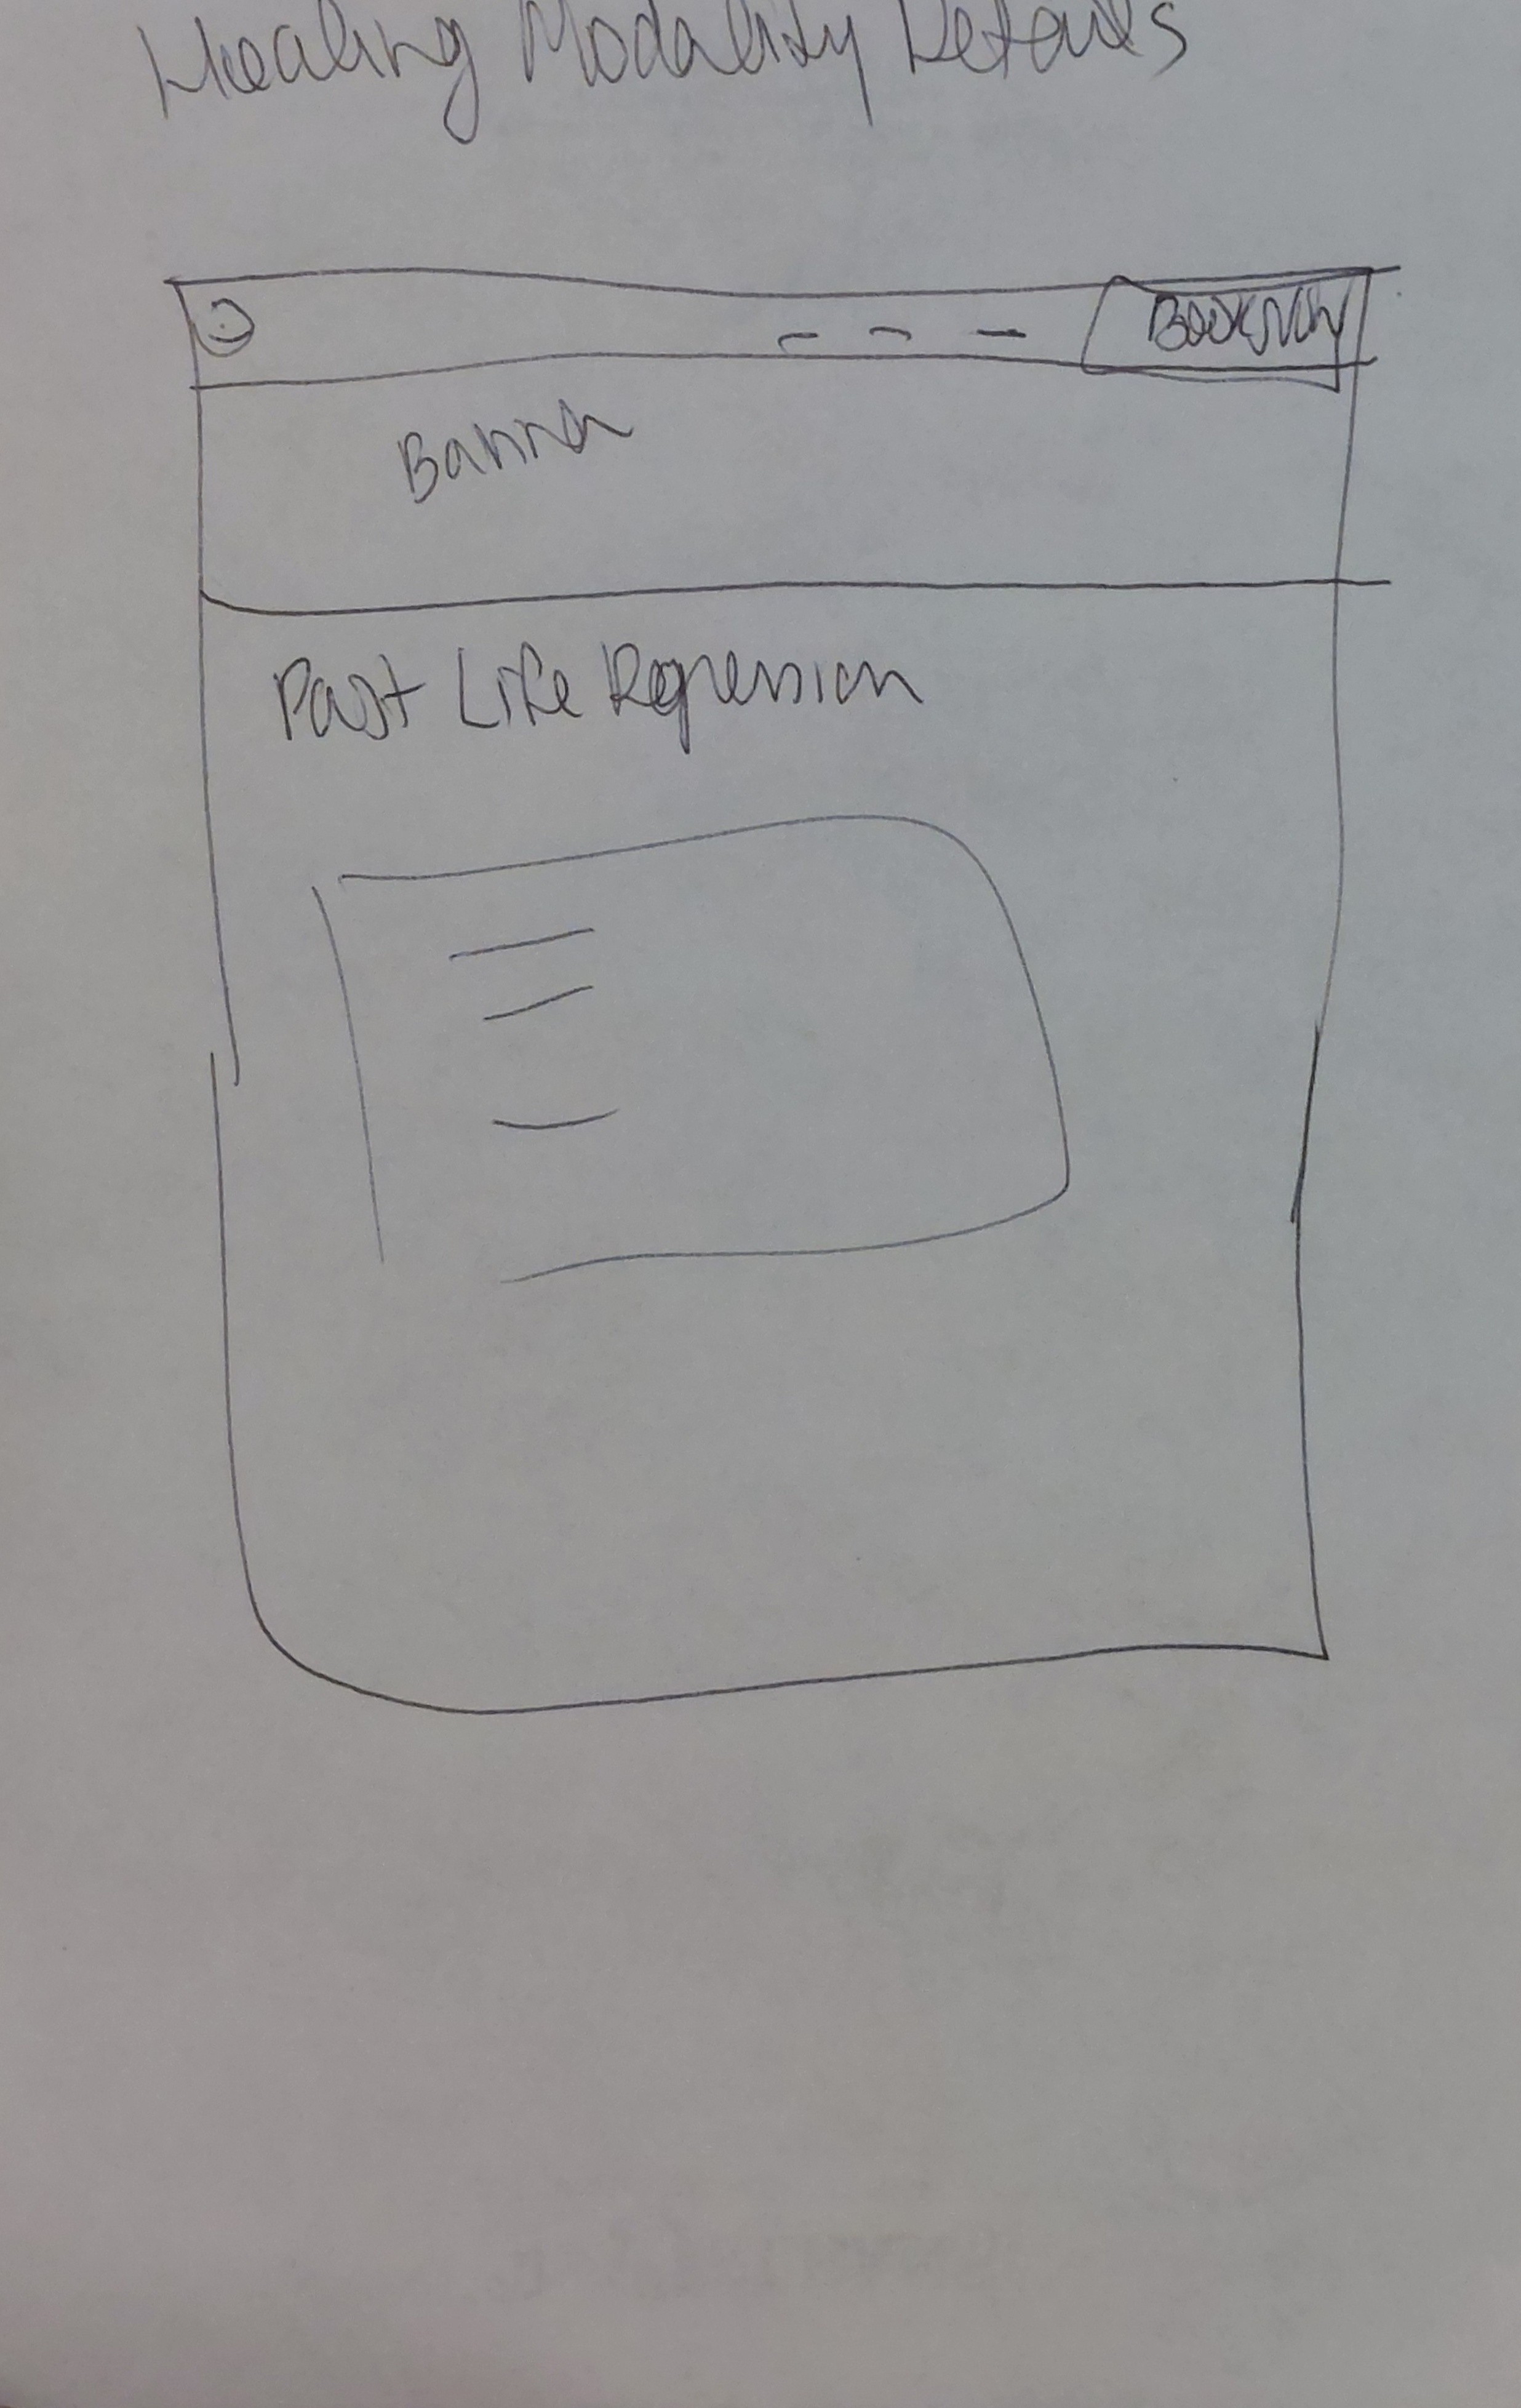 Healing Modality Details
Book Now
Banner
Past Life Regression